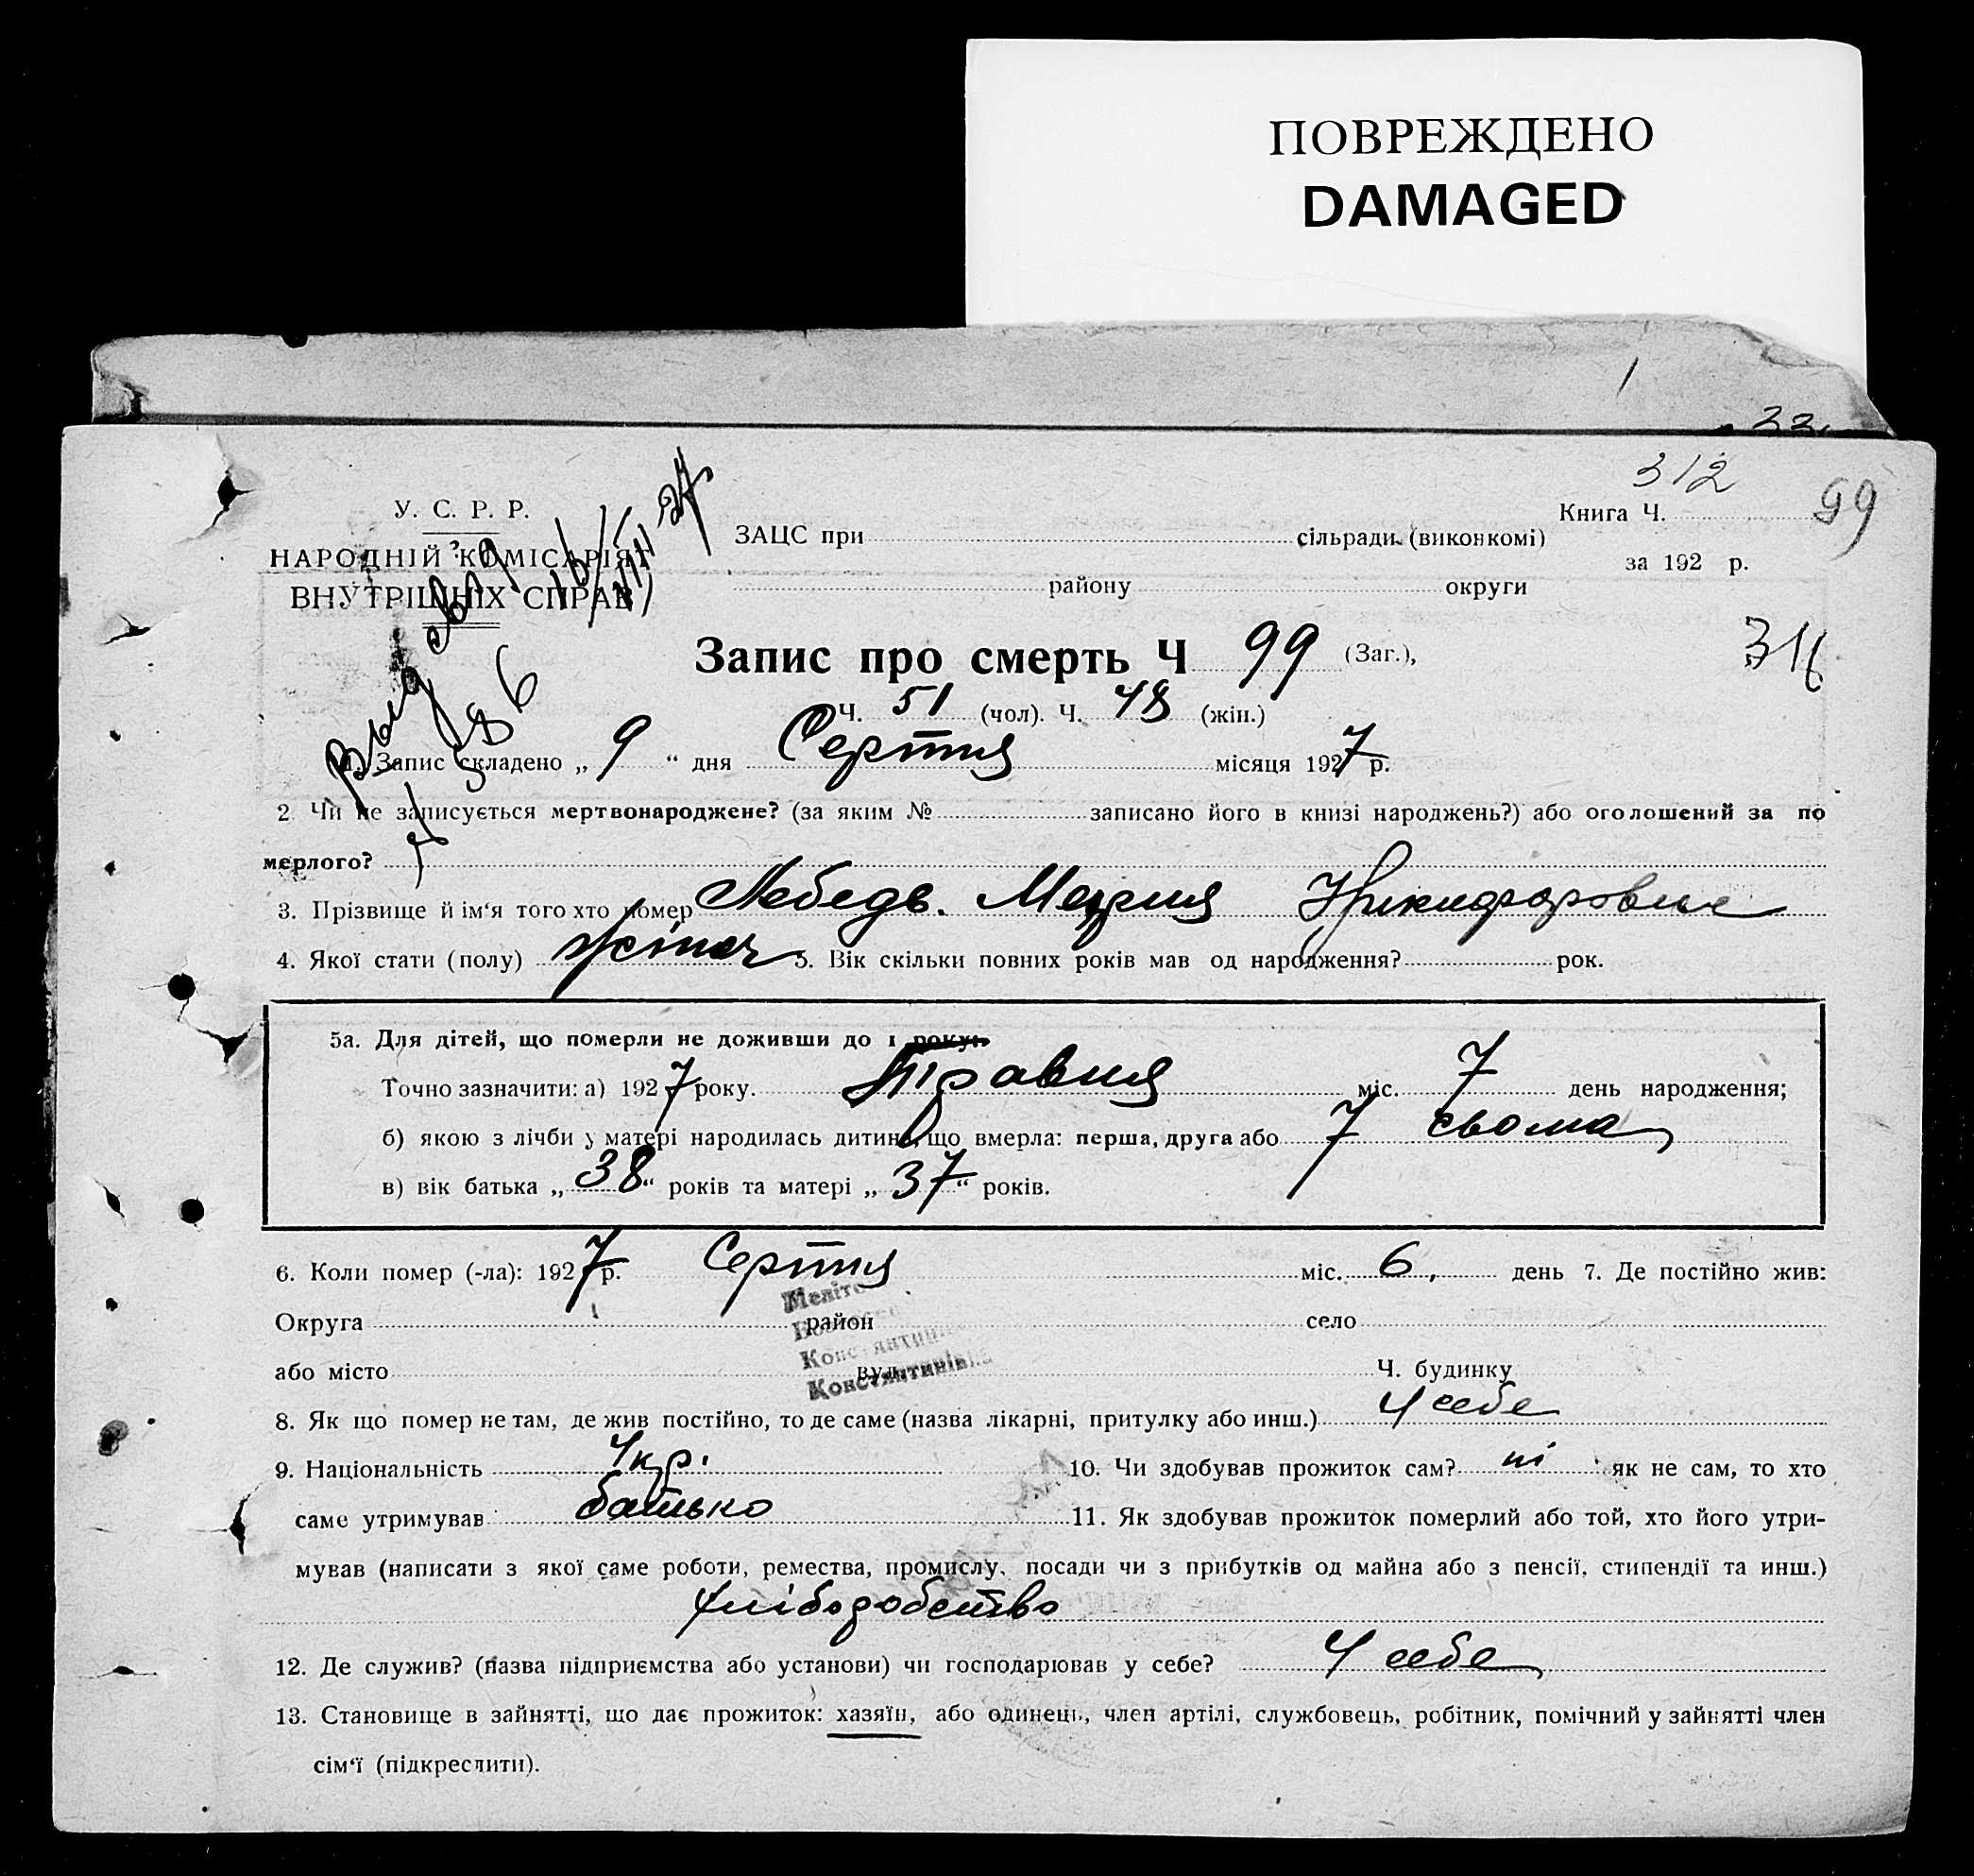 ПОВРЕЖДЕНО
DAMAGED
1
33
312
У. С. Р. Р.
НАРОДНІЙ КОМІСАРІЯТ
ВНУТРІШНІХ СПРАВ
ЗАЦС при сільради (виконкомі)
Книга Ч. 99
району округи
за 192 р.
Запис про смерть Ч 99 (Заг.),
Ч. 51 (чол). Ч. 48 (жін.)
1. Запис складено „ 9 “ дня Серпня місяця 1927 р.
2 Чи не записується мертвонароджене? (за яким № записано його в книзі народжень?) або оголошений за по
мерлого?
3. Прізвище й ім‘я того хто помер Лебедь. Мария Никифоровна
4. Якої стати (полу) жіноч 5. Вік скільки повних років мав од народження? рок.
5а. Для дітей, що померли не доживши до 1 року:
Точно зазначити: а) 1927 року. Травня міс. 7 день народження;
б) якою з лічби у матері народилась дитина, що вмерла: перша, друга або 7 сьома
в) вік батька „ 38 “ років та матері „ 37 “ років.
6. Коли помер (-ла): 1927 р. Серпня міс. 6, день 7. Де постійно жив:
Округа район село
або місто вул. Ч. будинку
Константинівка
8. Як що помер не там, де жив постійно, то де саме (назва лікарні, притулку або инш.) У себе
9. Національність Укр. 10. Чи здобував прожиток сам? ні як не сам, то хто
саме утримував батько 11. Як здобував прожиток померлий або той, хто його утри-
мував (написати з якої саме роботи, ремества, промислу, посади чи з прибутків од майна або з пенсії, стипендії та инш.)
хліборобство
12. Де служив? (назва підприємства або установи) чи господарював у себе? У себе
13. Становище в зайнятті, що дає прожиток: хазяїн, або одинець, член артілі, службовець, робітник, помічний у зайнятті член
сім‘ї (підкреслити).